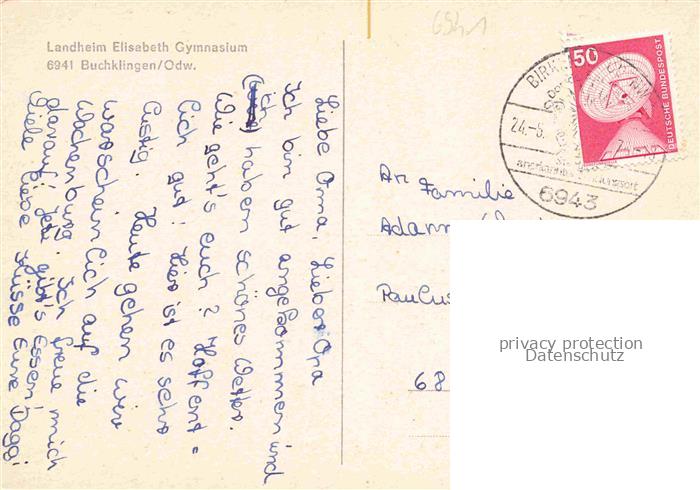 Landheim Elisabeth Gymnasium
6941 Buchklingen/Odw.
Liebe Oma, Lieber Opa
Ich bin gut angekommen und
(ich) haben schönes Wetter.
Wie geht's euch? Hoffent=
lich gut! Hier ist es sehr
lustig. Heute gehen wir
warscheinlich auf die
Wachenburg. Ich freue mich
darauf! Jetzt gibt's Essen!
Viele liebe Küsse Eure Dagi
6941
50
DEUTSCHE BUNDESPOST
BIRK
24.-6.
6943
An Familie
Adam
Paulus
68
privacy protection
Datenschutz